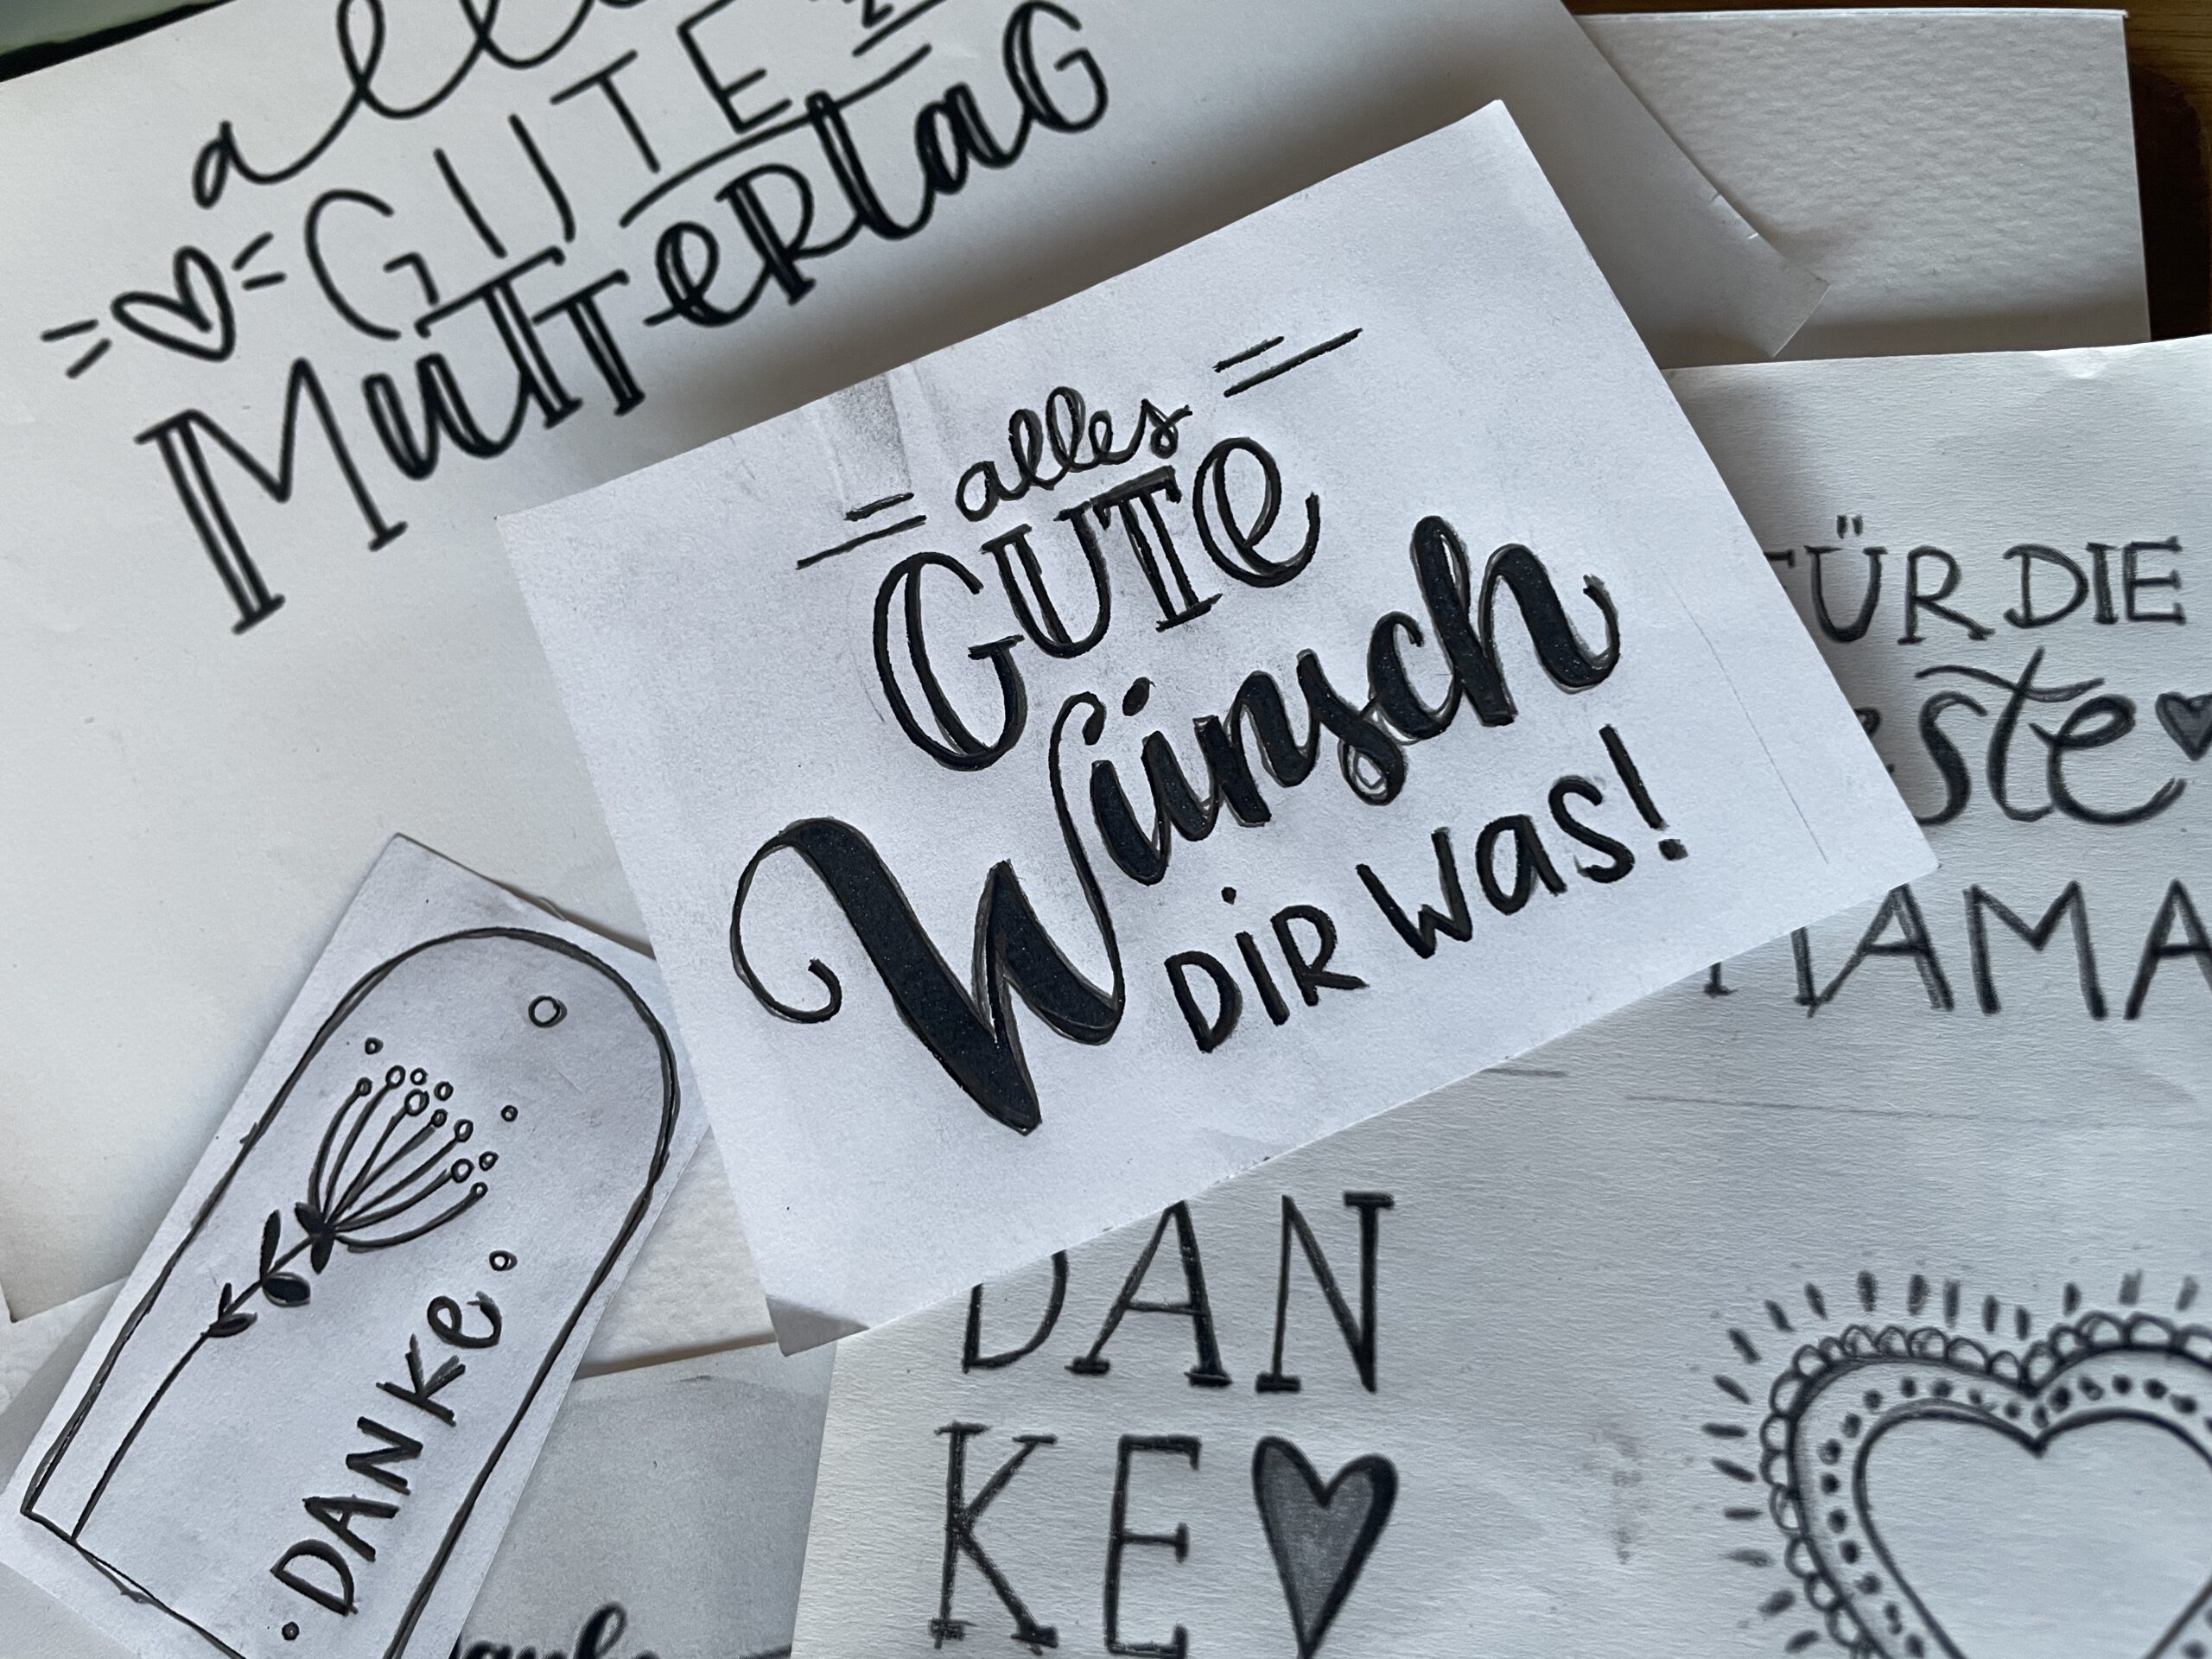 GUTE
Muttertag
alles
GUTE
Wünsch
DIR Was!
FÜR DIE
MAMA
DANKE
DAN
KE